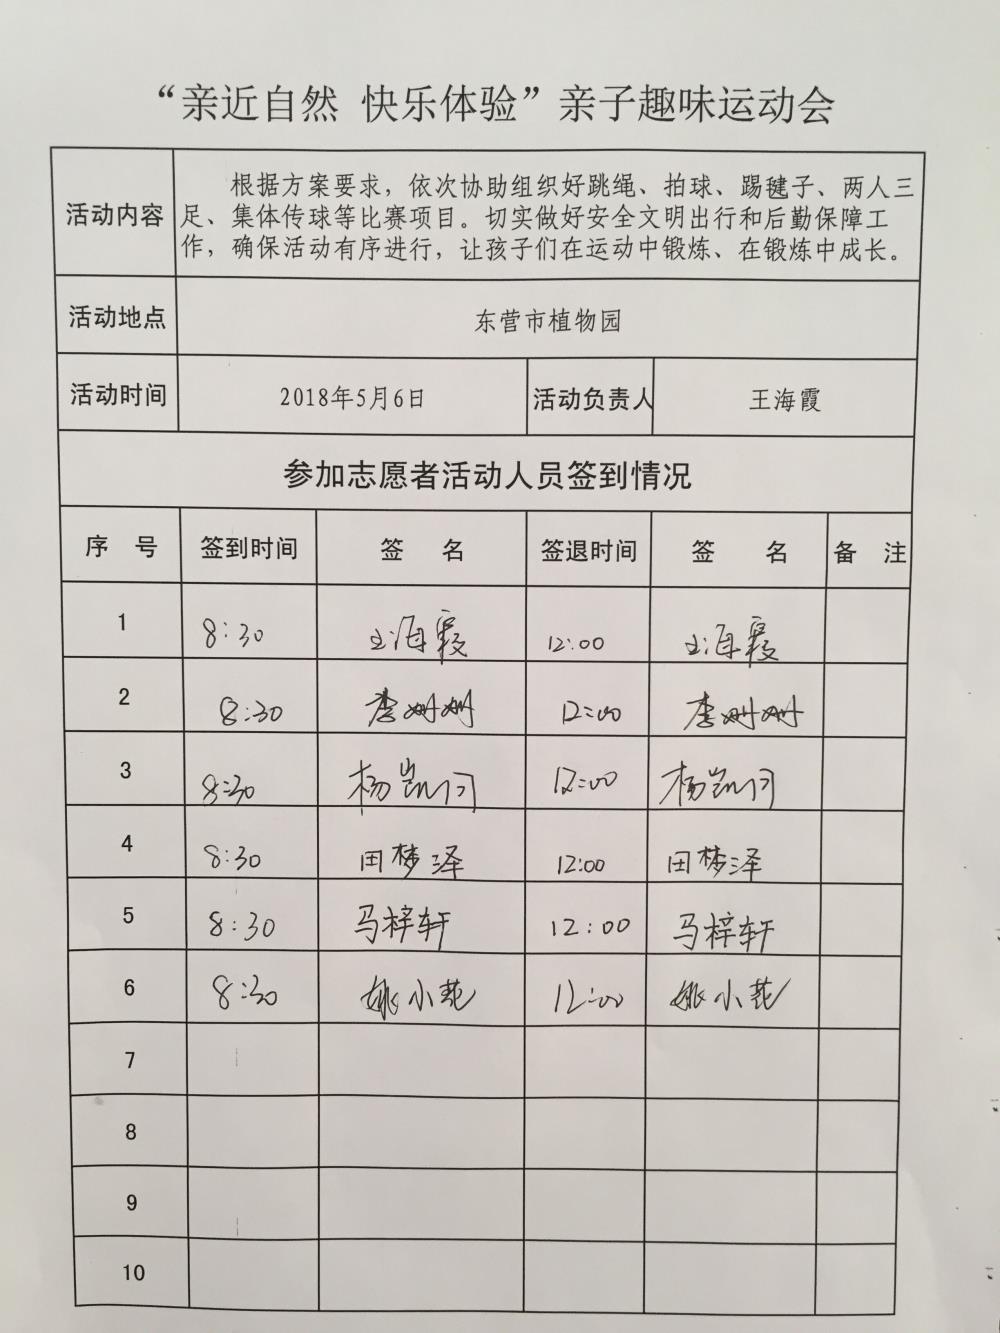 “亲近自然 快乐体验”亲子趣味运动会
活动内容
根据方案要求，依次协助组织好跳绳、拍球、踢毽子、两人三
足、集体传球等比赛项目。切实做好安全文明出行和后勤保障工
作，确保活动有序进行，让孩子们在运动中锻炼、在锻炼中成长。
活动地点 东营市植物园
活动时间 2018年5月6日 活动负责人 王海霞
参加志愿者活动人员签到情况
序 号 签到时间 签 名 签退时间 签 名 备 注
1 8:30 王海霞 12:00 王海霞
2 8:30 李姗姗 12:00 李姗姗
3 8:30 杨凯 12:00 杨凯
4 8:30 田梦泽 12:00 田梦泽
5 8:30 马梓轩 12:00 马梓轩
6 8:30 姚小花 12:00 姚小花
7
8
9
10